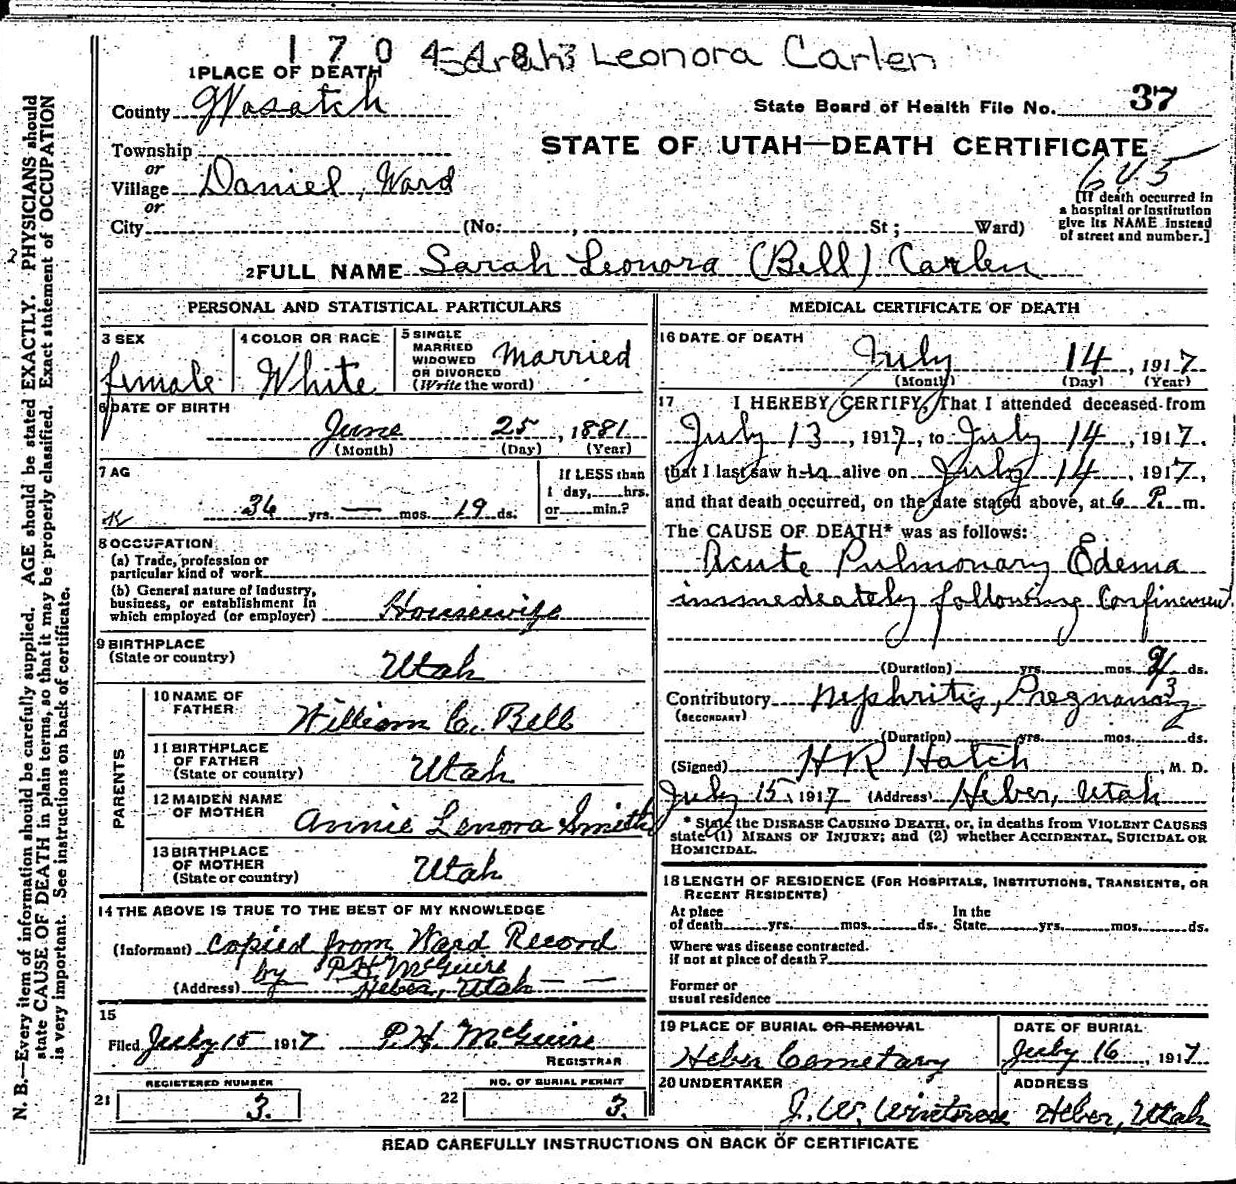 1704 Sarah Leonora Carlen
1 PLACE OF DEATH
County Wasatch
State Board of Health File No. 37
Township
STATE OF UTAH—DEATH CERTIFICATE
645
or
Village Daniel, Ward
or
City (No. , St ; Ward)
[If death occurred in
a hospital or institution
give its NAME instead
of street and number.]
2 FULL NAME Sarah Leonora (Bell) Carlen
PERSONAL AND STATISTICAL PARTICULARS
3 SEX
female
4 COLOR OR RACE
White
5 SINGLE
MARRIED
WIDOWED
OR DIVORCED
(Write the word)
Married
6 DATE OF BIRTH
June 25, 1881
(Month) (Day) (Year)
7 AG
36 yrs. — mos. 19 ds.
If LESS than
1 day, hrs.
or min.?
8 OCCUPATION
(a) Trade, profession or
particular kind of work
(b) General nature of Industry,
business, or establishment in
which employed (or employer) Housewife
9 BIRTHPLACE
(State or country)
Utah
PARENTS
10 NAME OF
FATHER
William C. Bell
11 BIRTHPLACE
OF FATHER
(State or country)
Utah
12 MAIDEN NAME
OF MOTHER
Annie Lenora Smith
13 BIRTHPLACE
OF MOTHER
(State or country)
Utah
14 THE ABOVE IS TRUE TO THE BEST OF MY KNOWLEDGE
(Informant) Copied from Ward Record
by P.H. McGuire
(Address) Heber, Utah
15
Filed July 15 1917 P.H. McGuire
REGISTRAR
REGISTERED NUMBER
21 3.
NO. OF BURIAL PERMIT
22 3.
MEDICAL CERTIFICATE OF DEATH
16 DATE OF DEATH
July 14, 1917
(Month) (Day) (Year)
17 I HEREBY CERTIFY, That I attended deceased from
July 13, 1917, to July 14, 1917,
that I last saw h er alive on July 14, 1917,
and that death occurred, on the date stated above, at 6 P. m.
The CAUSE OF DEATH* was as follows:
Acute Pulmonary Edema
immedeately following Confinement
(Duration) yrs. mos. ds.
Contributory Nephritis, Pregnancy
(SECONDARY)
(Duration) yrs. mos. ds.
(Signed) H R Hatch M. D.
July 15, 1917 (Address) Heber, Utah
* State the DISEASE CAUSING DEATH, or, in deaths from VIOLENT CAUSES
state (1) MEANS OF INJURY; and (2) whether ACCIDENTAL, SUICIDAL OR
HOMICIDAL.
18 LENGTH OF RESIDENCE (FOR HOSPITALS, INSTITUTIONS, TRANSIENTS, OR
RECENT RESIDENTS)
At place
of death yrs. mos. ds.
In the
State yrs. mos. ds.
Where was disease contracted.
if not at place of death?
Former or
usual residence
19 PLACE OF BURIAL OR REMOVAL
Heber Cemetary
DATE OF BURIAL
July 16, 1917
20 UNDERTAKER
J. W. Winterose
ADDRESS
Heber, Utah
READ CAREFULLY INSTRUCTIONS ON BACK OF CERTIFICATE
N. B.—Every item of information should be carefully supplied. AGE should be stated EXACTLY. PHYSICIANS should
state CAUSE OF DEATH in plain terms, so that it may be properly classified. Exact statement of OCCUPATION
is very important. See instructions on back of certificate.